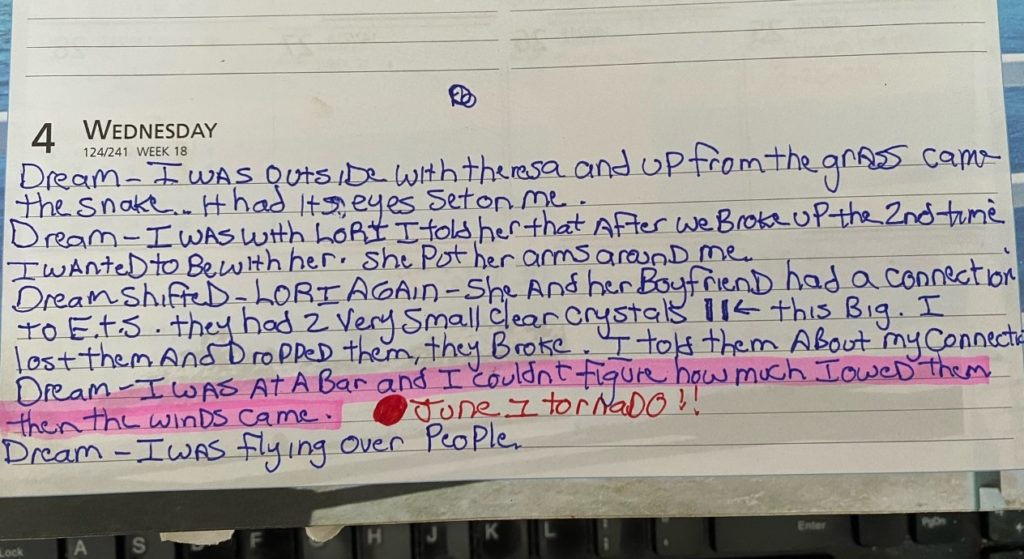 4 WEDNESDAY
124/241 WEEK 18
Dream - I WAS OUTSIDE With theresa and UP from the grASS came
the snake.. It had Its eyes Set on me.
Dream - I WAS With LORI I told her that After we Broke UP the 2nd time
I WAnteD to Be With her. She Put her arms arounD me.
Dream ShifteD - LORI AGAIN - She And her BoyfrienD had a connection
TO E.t.S. they had 2 Very Small clear crystals ← this Big. I
lost them And DroPPeD them, they Broke. I told them ABout my Connecti
Dream - I WAS At A Bar and I couldnt figure how much I oweD them
then the WINDS came. June 1 tornADO!!
Dream - I WAS flying over PeoPle.
Lock A S F H J K L Enter PgDn